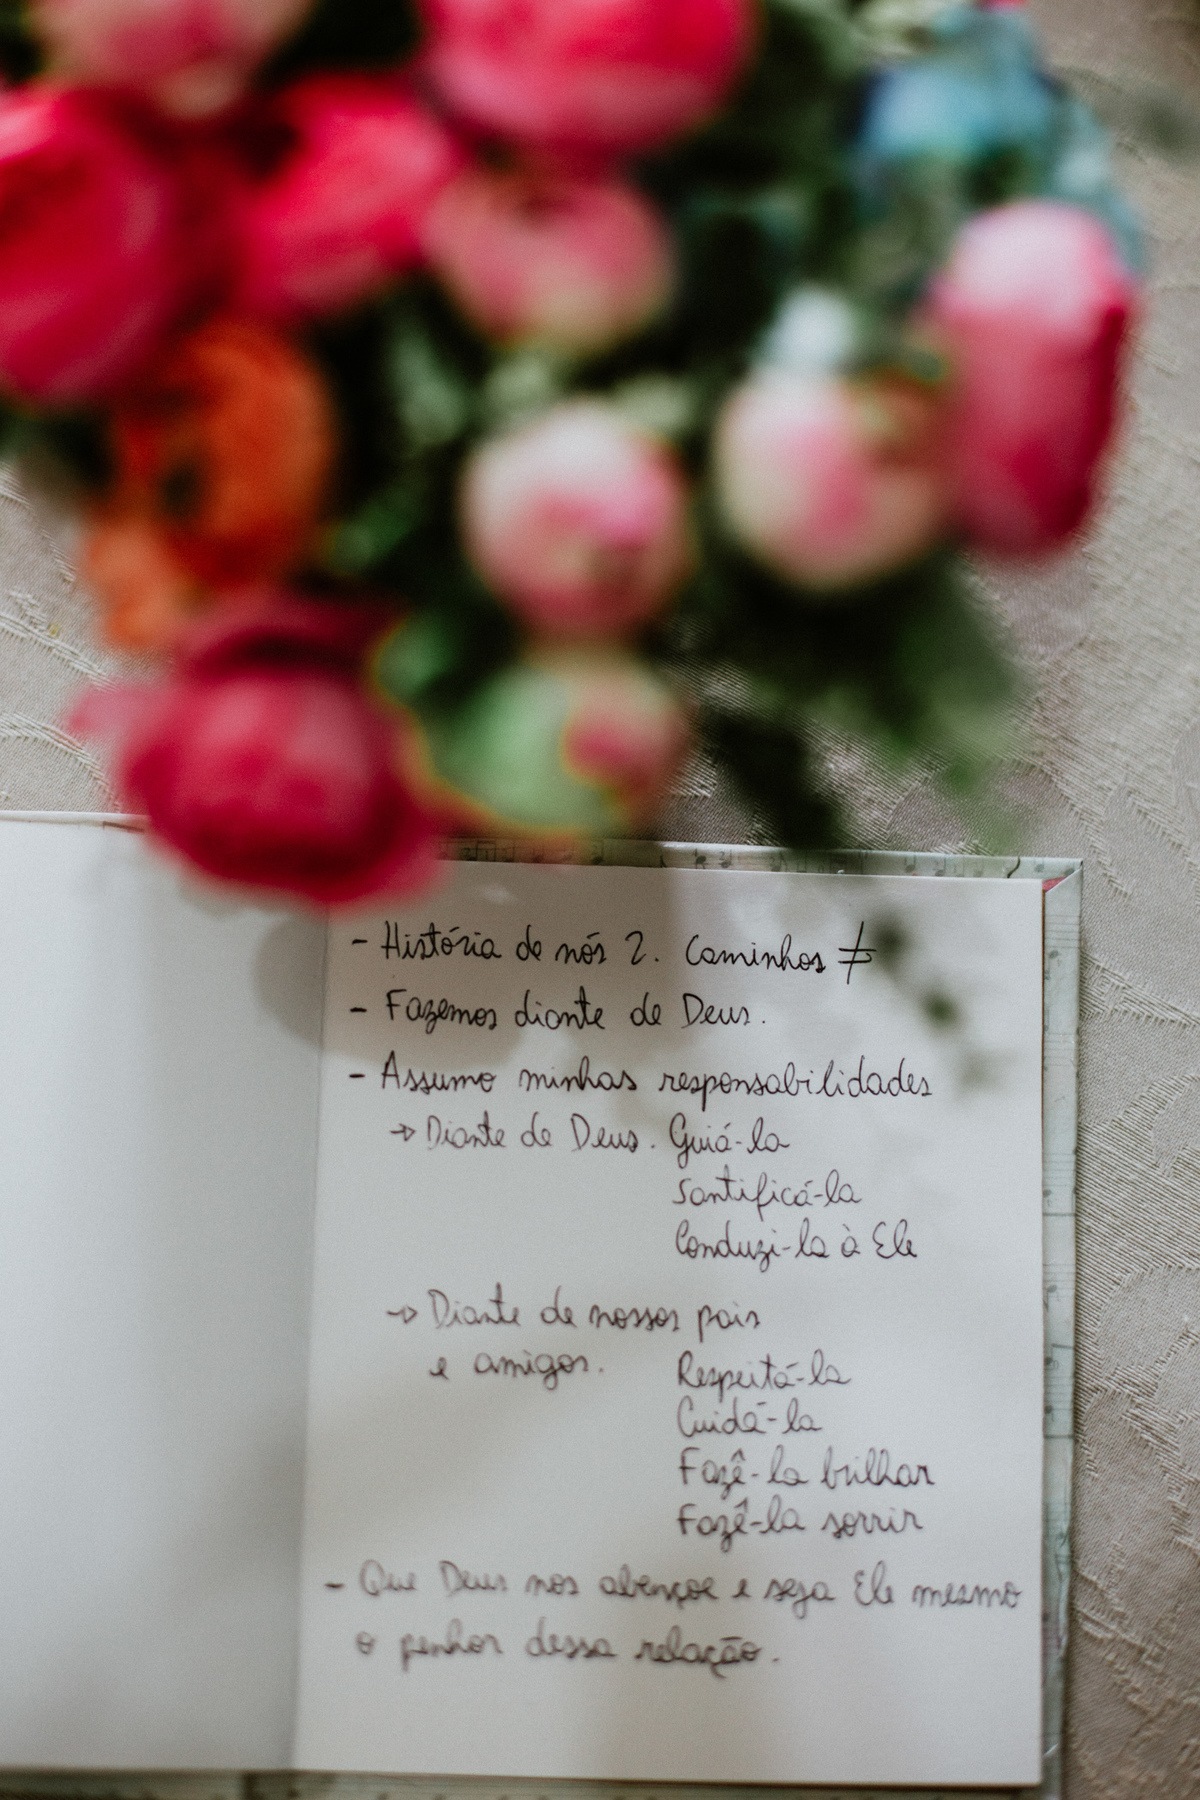 - História de nós 2. Caminhos ≠
- Fazemos diante de Deus.
- Assumo minhas responsabilidades
→ Diante de Deus. Guiá-la
Santificá-la
Conduzi-la à Ele
→ Diante de nossos pais
e amigos. Respeitá-la
Cuidá-la
Fazê-la brilhar
Fazê-la sorrir
- Que Deus nos abençoe e seja Ele mesmo
o penhor dessa relação.